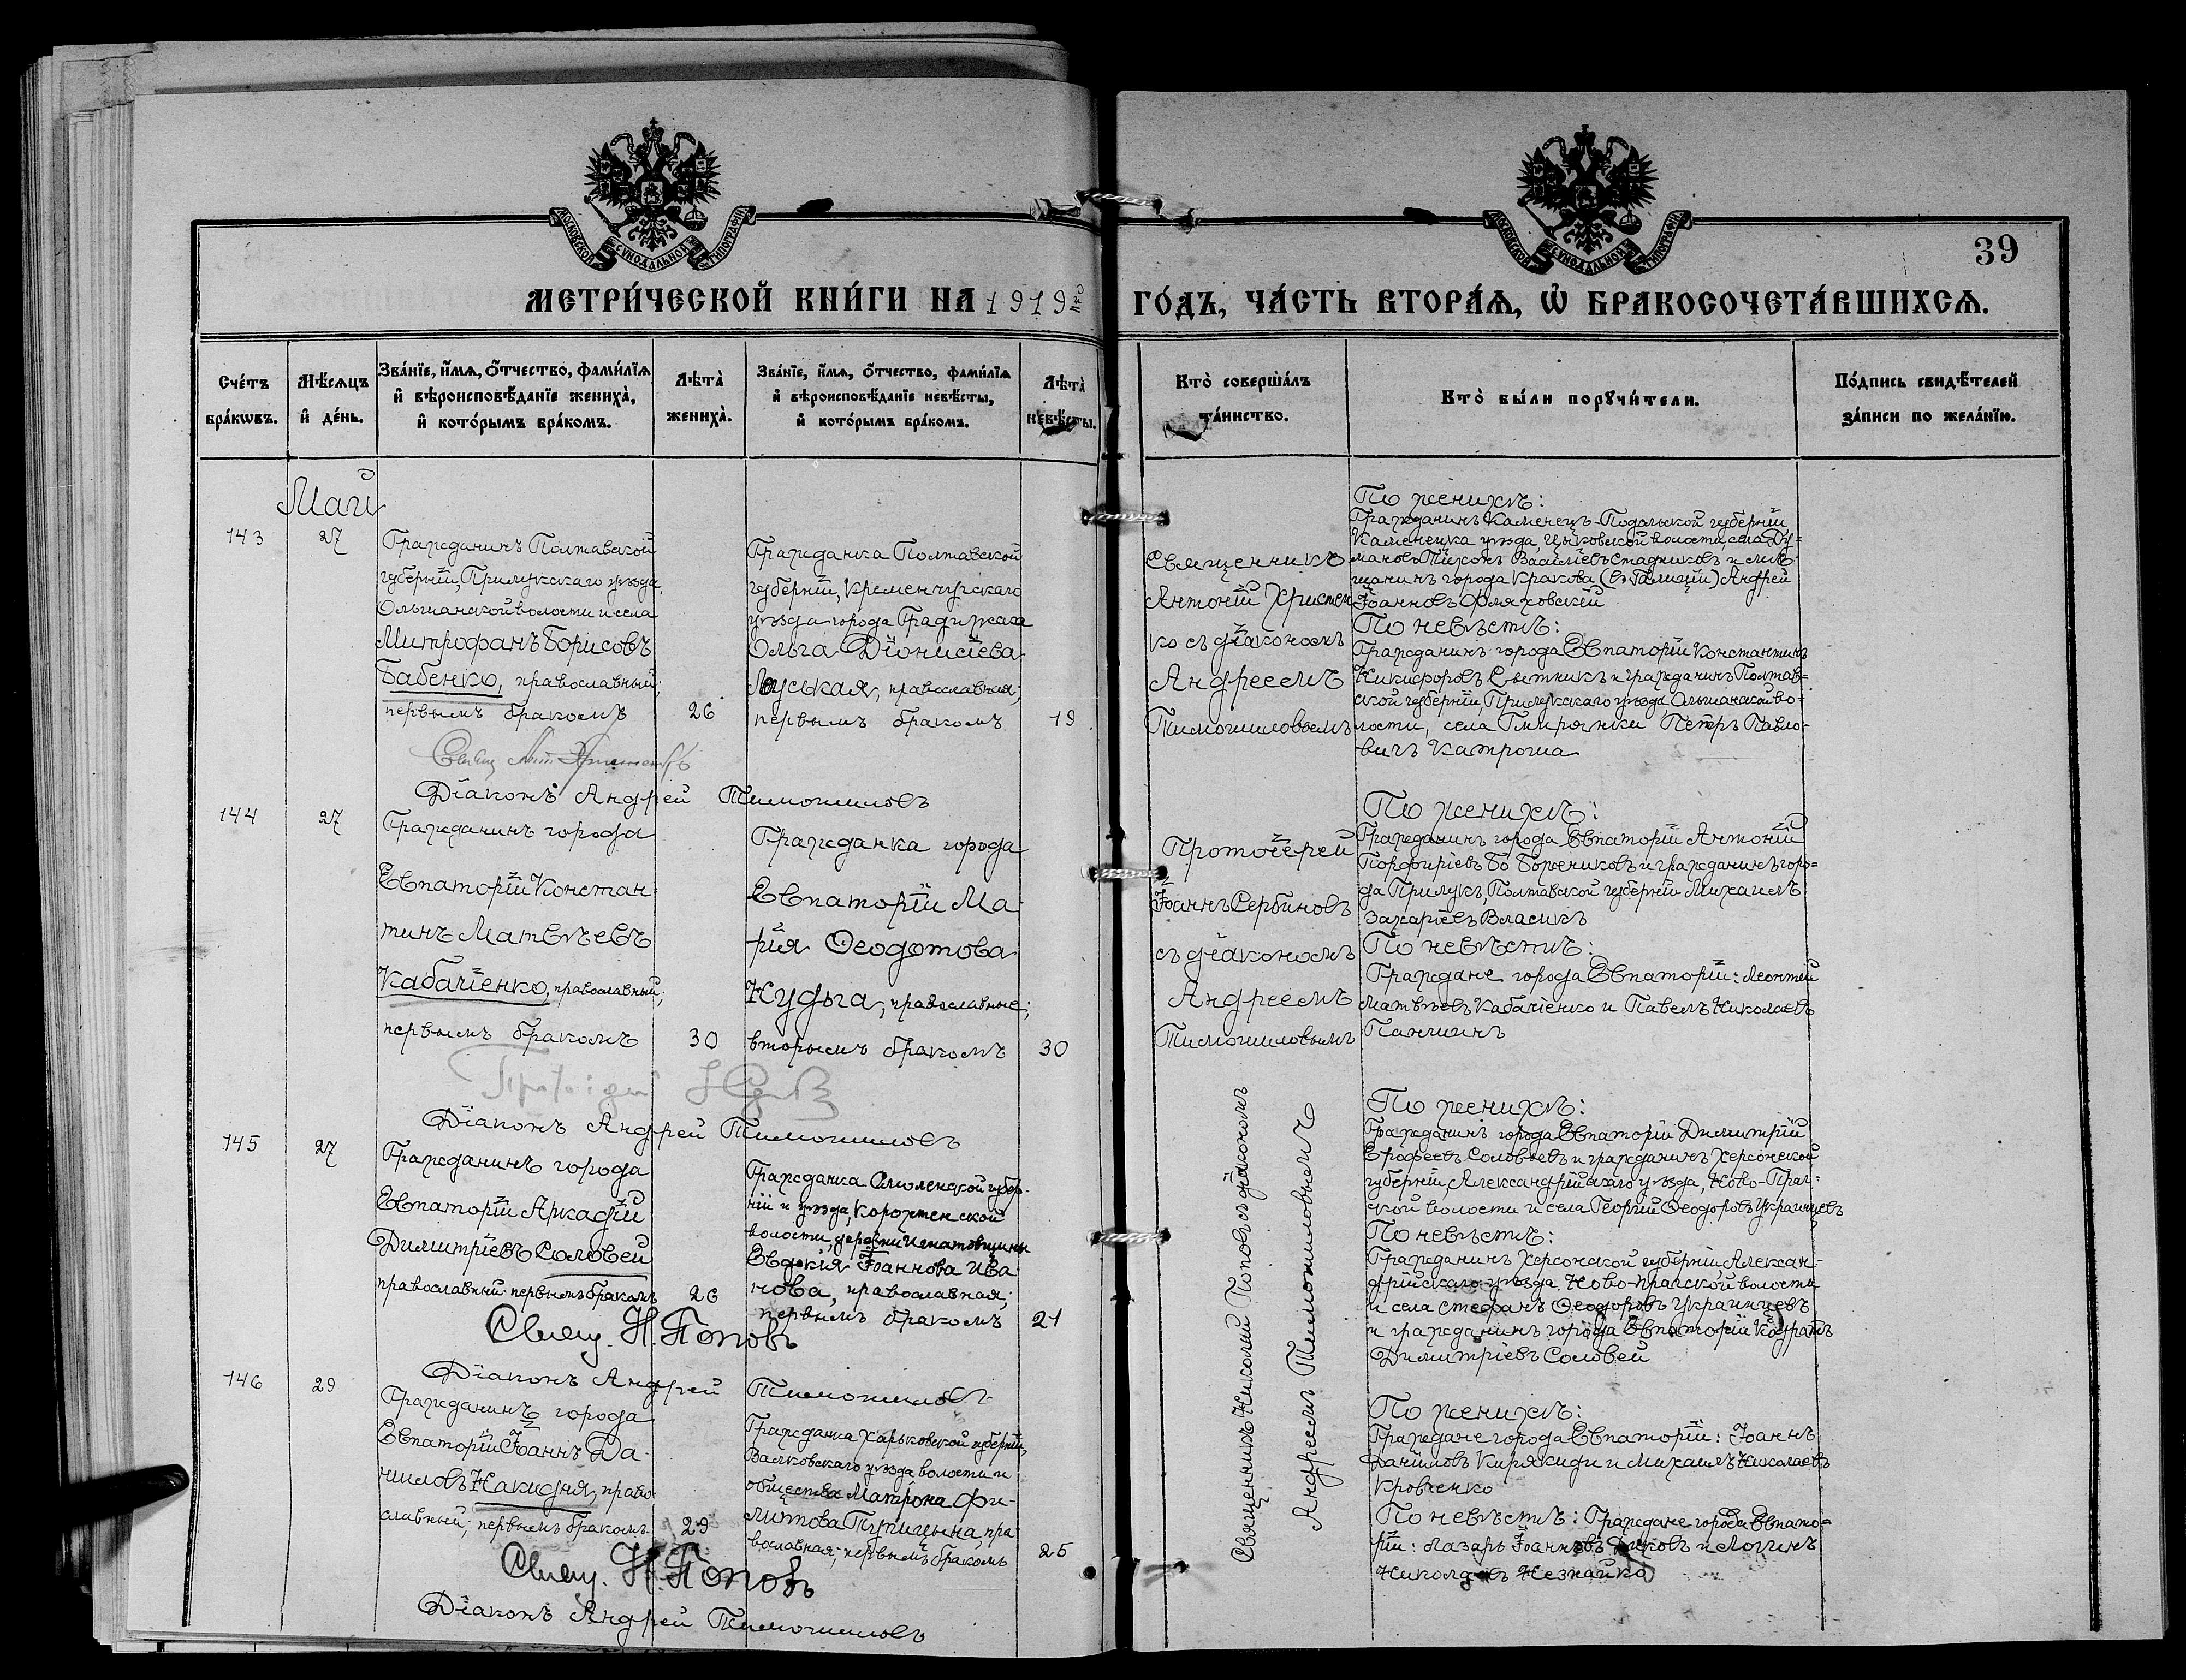 МОСКОВСКОЙ СѴНОДАЛЬНОЙ ТИПОГРАФІИ
МОСКОВСКОЙ СѴНОДАЛЬНОЙ ТИПОГРАФІИ
39
МЕТРИ́ЧЕСКОЙ КНИ́ГИ НА 1919й
ГО́ДЪ, ЧА́СТЬ ВТОРА́Ѧ, Ѽ БРАКОСОЧЕТА́ВШИХСѦ.
Сче́тъ бра́кѡвъ.
Мѣ́сѧцъ и҆ де́нь.
Зва́нїе, и҆́мѧ, ѻ҆́тчество, фами́лїѧ и҆ вѣроисповѣ́данїе жениха̀, и҆ кото́рымъ бра́комъ.
Лѣта̀ жениха̀.
Зва́нїе, и҆́мѧ, ѻ҆́тчество, фами́лїѧ и҆ вѣроисповѣ́данїе невѣ́сты, и҆ кото́рымъ бра́комъ.
Лѣта̀ невѣ́сты.
Кто̀ соверша́лъ та́инство.
Кто̀ бы́ли порꙋчи́тели.
По́дпись свидѣ́телей за́писи по жела́нїю.
Май
143
27
Гражданинъ Полтавской
губерніи, Прилукскаго уѣзда,
Ольшанской волости и села
Митрофанъ Борисовъ
Бабенко, православный;
первымъ бракомъ
26
Гражданка Полтавской
губерніи, Кременчугскаго
уѣзда города Градижска
Ольга Діонисіева
Луськая, православная;
первымъ бракомъ
19
Священникъ
Антоній Христен
ко съ діакономъ
Андреемъ
Тимошиловымъ
По женихѣ:
Гражданинъ Каменецъ-Подольской губерніи
Каменецка уѣзда, Цыковской волости, села Ду=
мановъ Тихонъ Василіевъ Стадниковъ и мѣ
щанинъ города Кракова (въ Галиціи) Андрей
Іоанновъ Фляховскій
По невѣстѣ:
Гражданинъ города Евпаторіи Константинъ
Никифоровъ Сытникъ и гражданинъ Полтав=
ской губерніи, Прилукскаго уѣзда, Ольшанской во=
лости, села Гмирянки Петръ Павло-
вичъ Катроша
Діаконъ Андрей Тимошиловъ
144
27
Гражданинъ города
Евпаторіи Констан=
тинъ Матвѣевъ
Кабаченко, православный;
первымъ бракомъ
30
Гражданка города
Евпаторіи Ма-
рія Ѳеодотова
Кудыга, православные;
вторымъ бракомъ
30
Протоіерей
Іоаннъ Сербиновъ
съ діакономъ
Андреемъ
Тимошиловымъ
По женихѣ:
Гражданинъ города Евпаторіи Антоній
Порфиріевъ Бо Боженковъ и гражданинъ горо=
да Прилукъ, Полтавской губерніи Михаилъ
Захаріевъ Власикъ
По невѣстѣ:
Граждане города Евпаторіи: Леонтій
Матвѣевъ Кабаченко и Павелъ Николаевъ
Паншинъ
Діаконъ Андрей Тимошиловъ
145
27
Гражданинъ города
Евпаторіи Аркадій
Димитріевъ Соловей
православный первымъ бракомъ
26
Гражданка Смоленской губер-
ніи и уѣзда, Корохтенской
волости, деревни Игнатовщины
Евдокія Іоаннова Ива
нова, православная;
первымъ бракомъ
21
Священникъ Николай Поповъ съ діакономъ
Андреемъ Тимошиловымъ
По женихѣ:
Гражданинъ города Евпаторіи Димитрій
Ерофеевъ Соловьевъ и гражданинъ Херсонской
губерніи, Александрійскаго уѣзда, Ново-Праг-
ской волости и села Георгій Ѳеодоровъ Украинцевъ
По невѣстѣ:
Гражданинъ Херсонской губерніи Алексан-
дрійскаго уѣзда Ново-Прагской волости
и села Стефанъ Ѳеодоровъ Украинцевъ
и гражданинъ города Евпаторіи Кодратъ
Димитріевъ Соловей
Свящ. Н. Поповъ
Діаконъ Андрей Тимошиловъ
146
29
Гражданинъ города
Евпаторіи Іоаннъ Да-
ниловъ Накидня, право
славный; первымъ бракомъ
29
Гражданка Харьковской губерніи,
Валковскаго уѣзда волости и
общества Матрона Фи-
липпова Тупицына, пра
вославная; первымъ бракомъ
25
По женихѣ:
Граждане города Евпаторіи: Іоаннъ
Даниловъ Кирякиди и Михаилъ Николаевъ
Кровченко
По невѣстѣ: Граждане города Евпато=
ріи: Лазарь Іоанновъ и Логинъ
Николаевъ Незнайко
Свящ. Н. Поповъ
Діаконъ Андрей Тимошиловъ